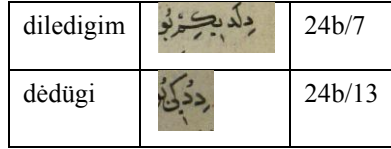 diledigim دِلَدِيكِمْ 24b/7
dėdügi دِدُكِى 24b/13